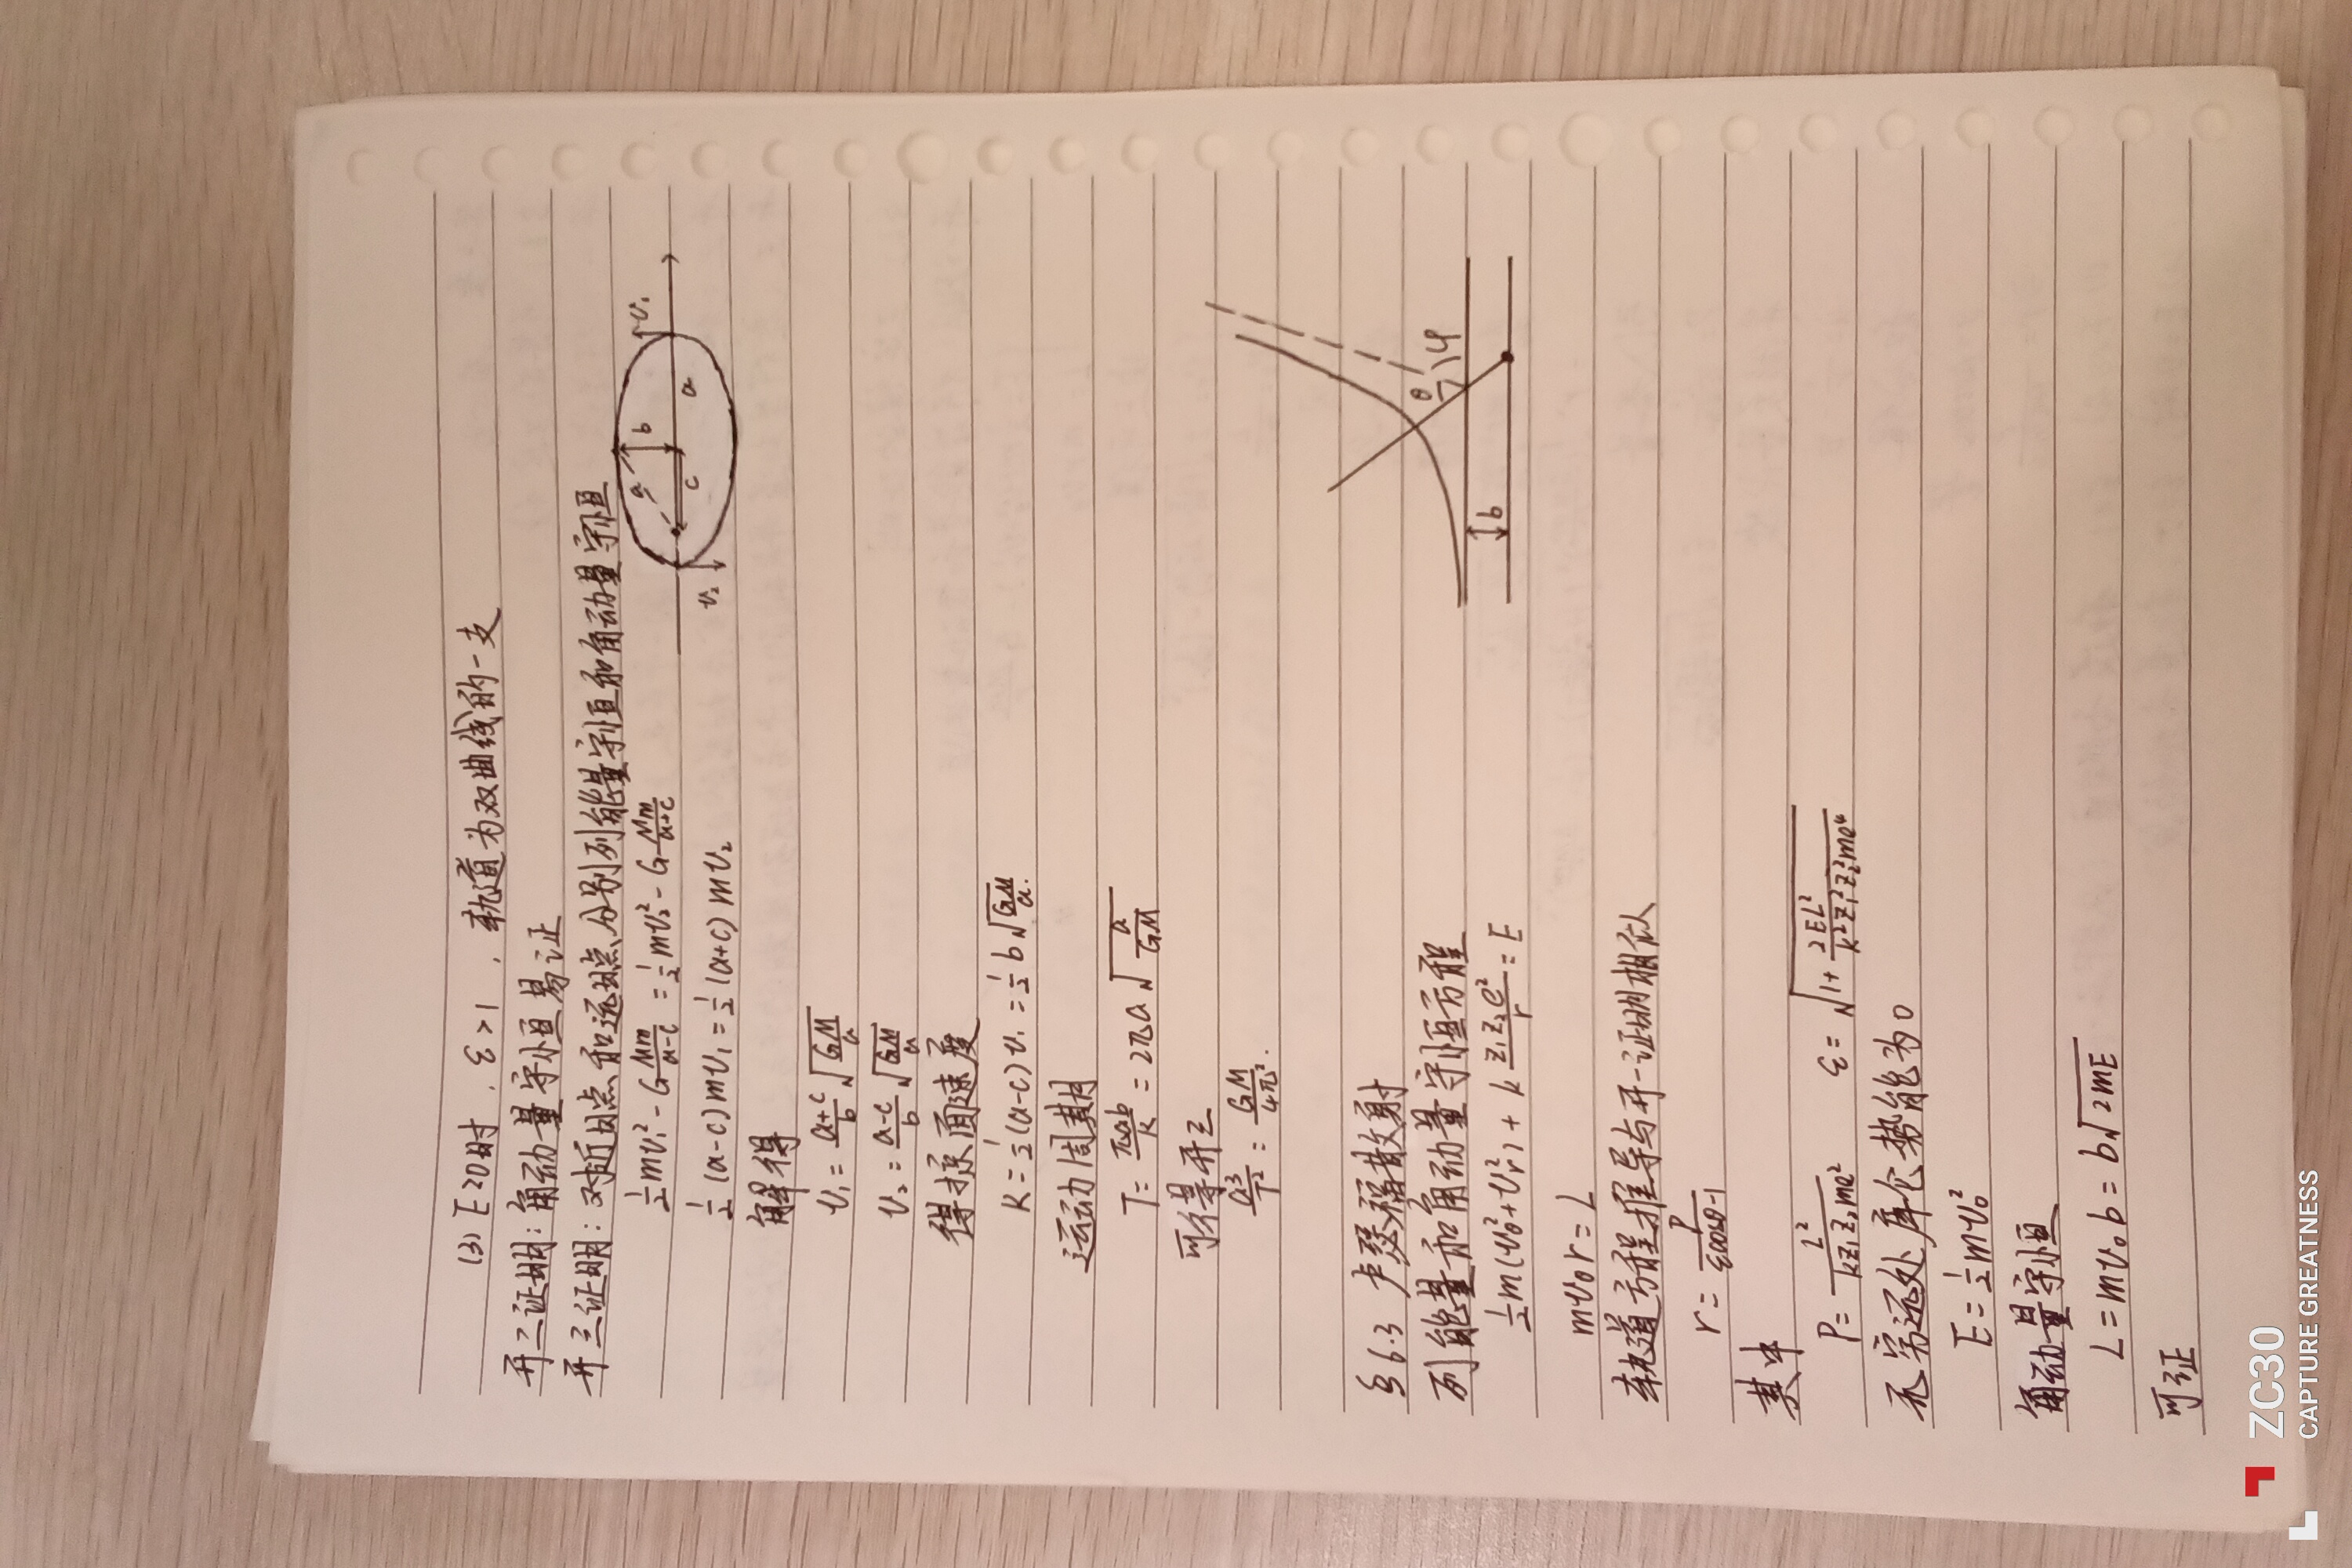 (3) E>0时, ε>1, 轨道为双曲线的一支
开二证明: 角动量守恒易证
开三证明: 对近地点和远地点分别列能量守恒和角动量守恒
½mv₁² - G Mm/(a-c) = ½mv₂² - G Mm/(a+c)
½(a-c)mv₁ = ½(a+c)mv₂
解得
v₁ = (a+c)/b √(GM/a)
v₂ = (a-c)/b √(GM/a)
得掠面速度
K = ½(a-c)v₁ = ½b√(GM/a).
运动周期
T = πab/K = 2πa√(a/GM)
可得开三
a³/T² = GM/4π².
v₁
v₂
a
b
c
a
§6.3 卢瑟福散射
列能量和角动量守恒方程
½m(v_θ²+v_r²) + k Z₁Z₂e²/r = E
mv_θr = L
轨道方程推导与开一证明相似
r = P/(εcosθ-1)
其中
P = L²/(kZ₁Z₂me²) ε = √(1+2EL²/(k²Z₁²Z₂²me⁴))
无穷远处库仑势能为0
E = ½mv₀²
角动量守恒
L = mv₀b = b√(2mE)
可证
θ
φ
b
ZC30
CAPTURE GREATNESS